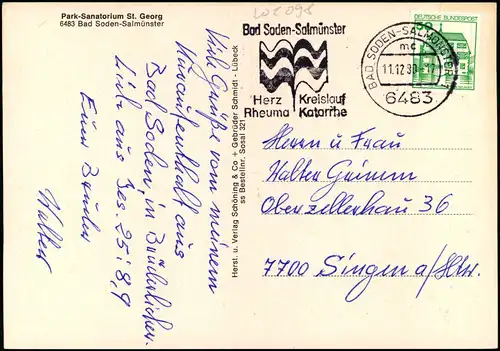 Park-Sanatorium St. Georg
6483 Bad Soden-Salmünster
Viele Grüße von meinem
Kuraufenthalt aus
Bad Soden, in Brüderlicher
Liebe aus Jes. 25: 8,9
Euer Bruder
Walter
Herst. u. Verlag Schöning & Co + Gebrüder Schmidt - Lübeck
ss Bestellnr. Sosal 321
Bad Soden-Salmünster
Herz Kreislauf
Rheuma Katarrhe
BAD SODEN-SALMÜNSTER
mc
11.12.80
6483
DEUTSCHE BUNDESPOST
Herrn u Frau
Walter Grimm
Oberzellerhau 36
7700 Singen a/Htw.